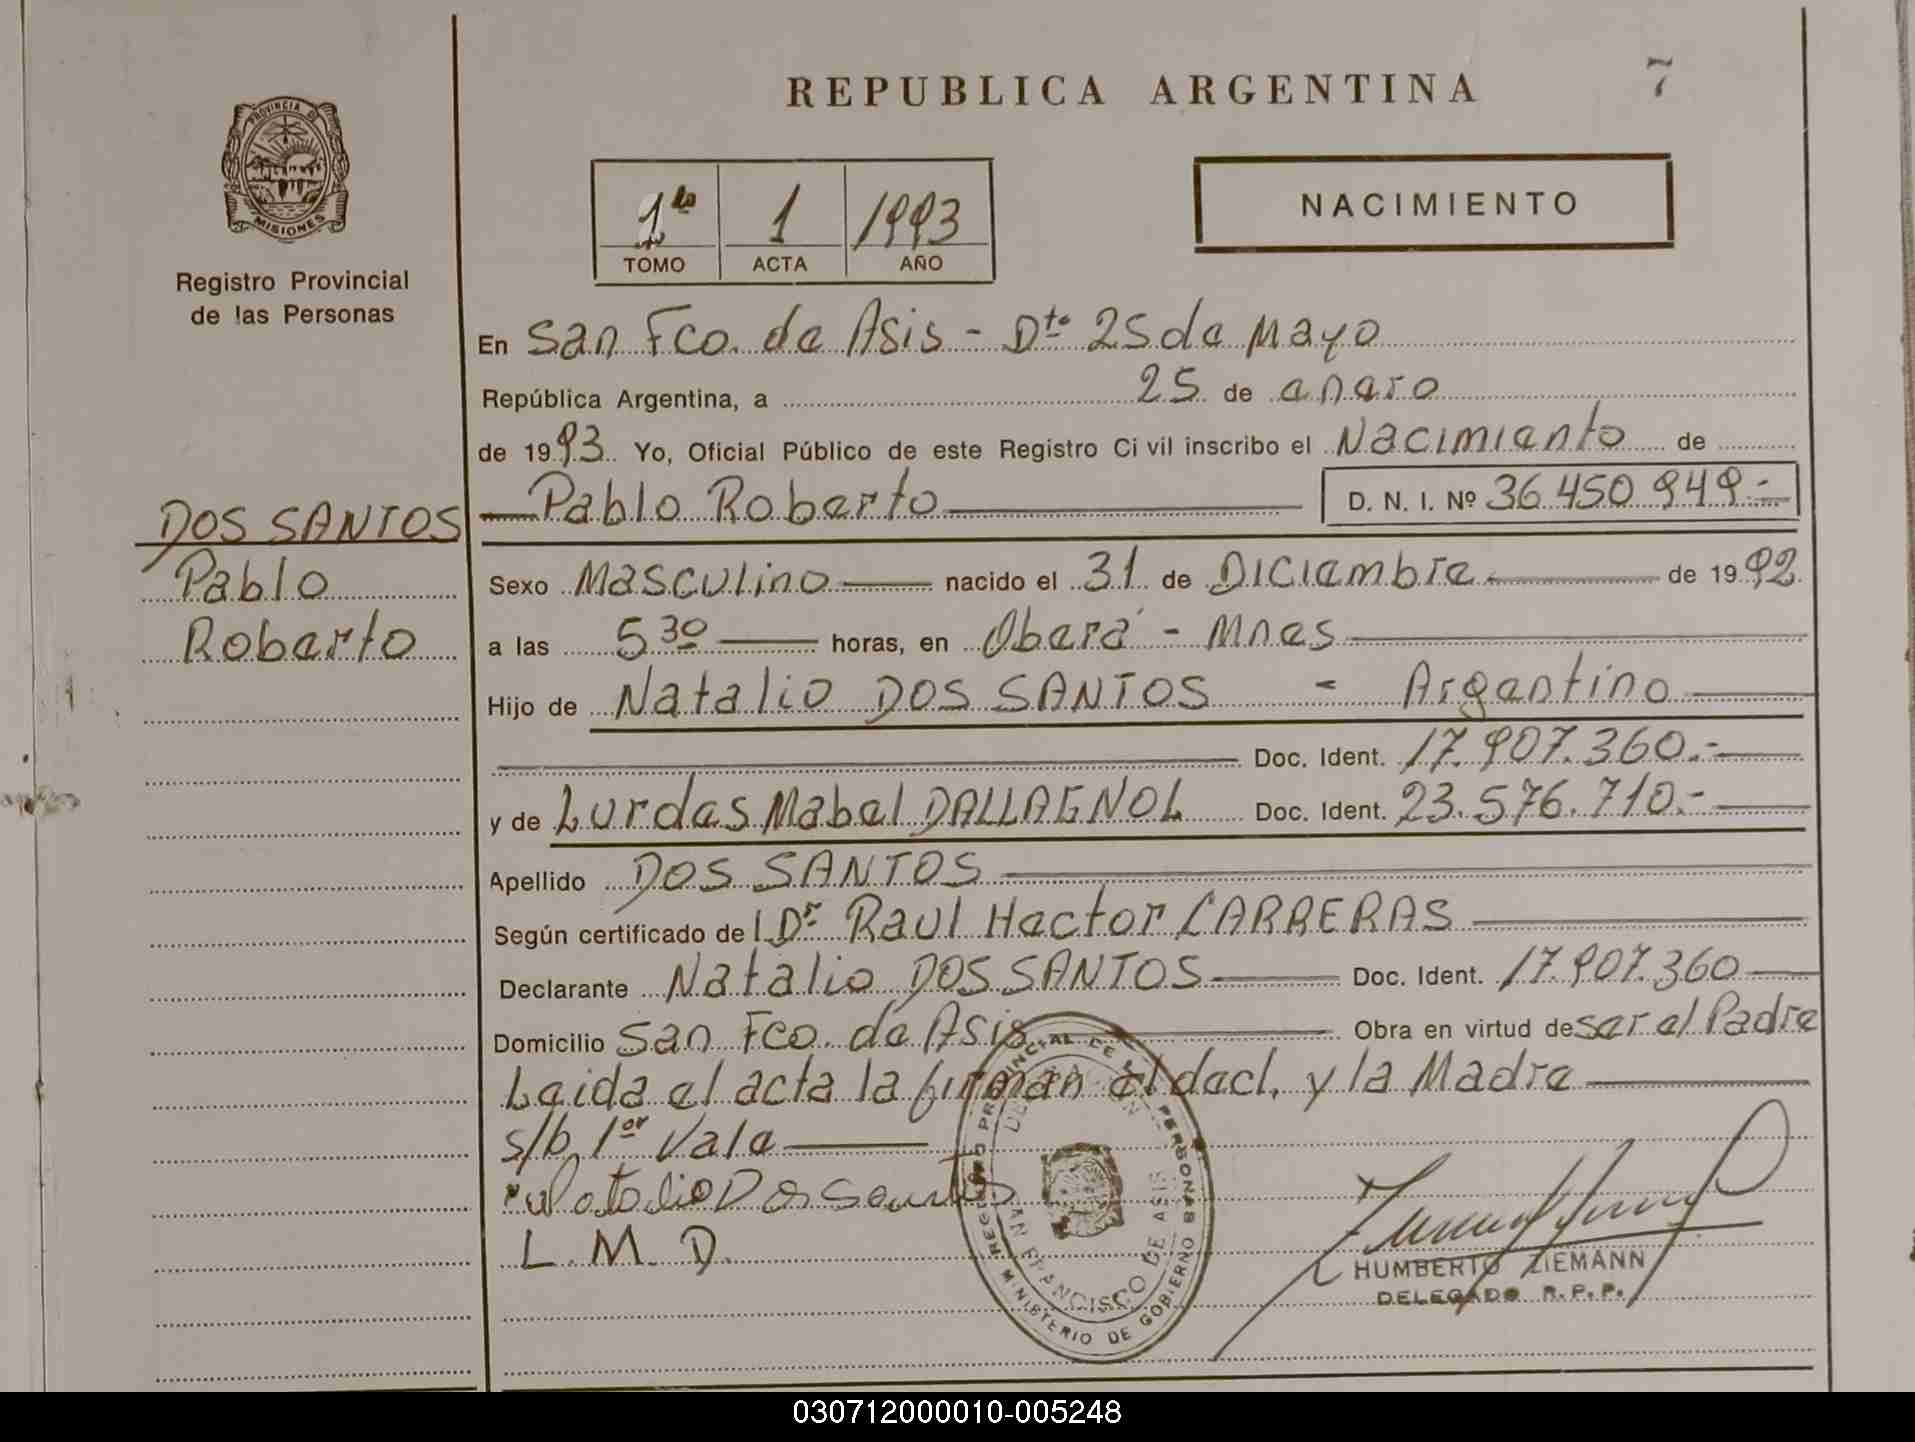 REPUBLICA ARGENTINA
7
PROVINCIA DE
MISIONES
Registro Provincial
de las Personas
1ro 1 1993
TOMO ACTA AÑO
NACIMIENTO
En San Fco. de Asis - Dto 25 de Mayo
República Argentina, a 25 de enero
de 1993 Yo, Oficial Público de este Registro Civil inscribo el Nacimiento de
Pablo Roberto D. N. I. Nº 36.450.949.-
DOS SANTOS
Pablo
Roberto
Sexo Masculino nacido el 31 de Diciembre de 1992
a las 5 30 horas, en Oberá - Mnes
Hijo de Natalio DOS SANTOS - Argentino
Doc. Ident. 17.907.360.-
y de Lurdes Mabel DALLAGNOL Doc. Ident. 23.576.710.-
Apellido DOS SANTOS
Según certificado del Dr Raul Hector CARRERAS
Declarante Natalio DOS SANTOS Doc. Ident. 17.907.360
Domicilio San Fco. de Asis Obra en virtud de ser el Padre
Leida el acta la firman el decl. y la Madre
s/b 1er Vale
Natalio Dos Santos
L. M. D.
REGISTRO PROVINCIAL DE LAS PERSONAS
DELEGACION
SAN FRANCISCO DE ASIS
MINISTERIO DE GOBIERNO
HUMBERTO ZIEMANN
DELEGADO R.P.P.
030712000010-005248